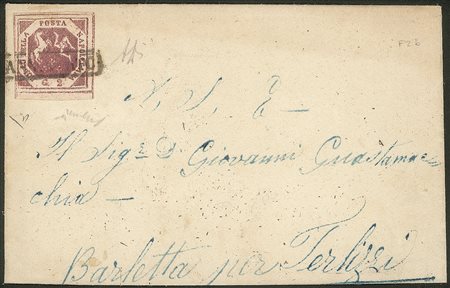 POSTA NAPOLETANA
G. 2
F26
N. S. E
Il Sig.re D Giovanni Guastamac=
chia=
Barletta per Terlizzi